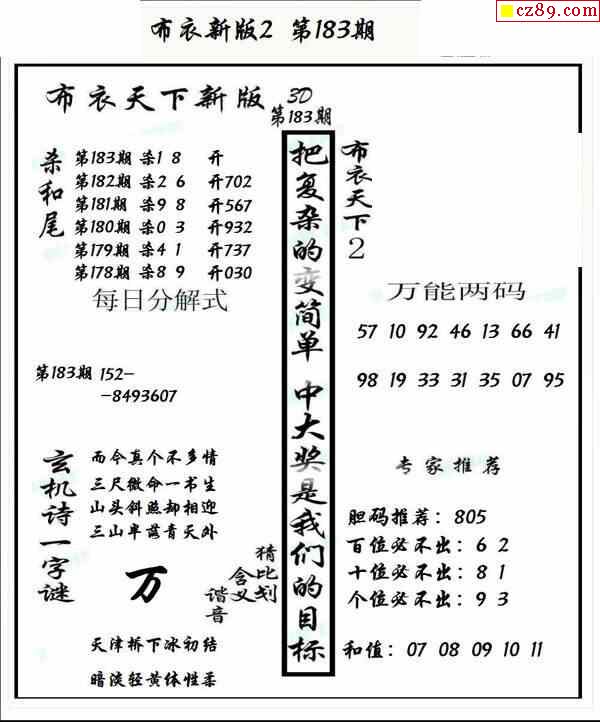 cz89.com
布衣新版2 第183期
布衣天下新版 3D
第183期
杀和尾
第183期 杀1 8 开
第182期 杀2 6 开702
第181期 杀9 8 开567
第180期 杀0 3 开932
第179期 杀4 1 开737
第178期 杀8 9 开030
每日分解式
第183期 152-
-8493607
玄机诗一字谜
而今真个不多情
三尺微命一书生
山头斜照却相迎
三山半落青天外
万
猜比划
含义
谐音
天津桥下冰初结
暗淡轻黄体性柔
把复杂的变简单 中大奖是我们的目标
布衣天下2
万能两码
57 10 92 46 13 66 41
98 19 33 31 35 07 95
专家推荐
胆码推荐:805
百位必不出:6 2
十位必不出:8 1
个位必不出:9 3
和值:07 08 09 10 11